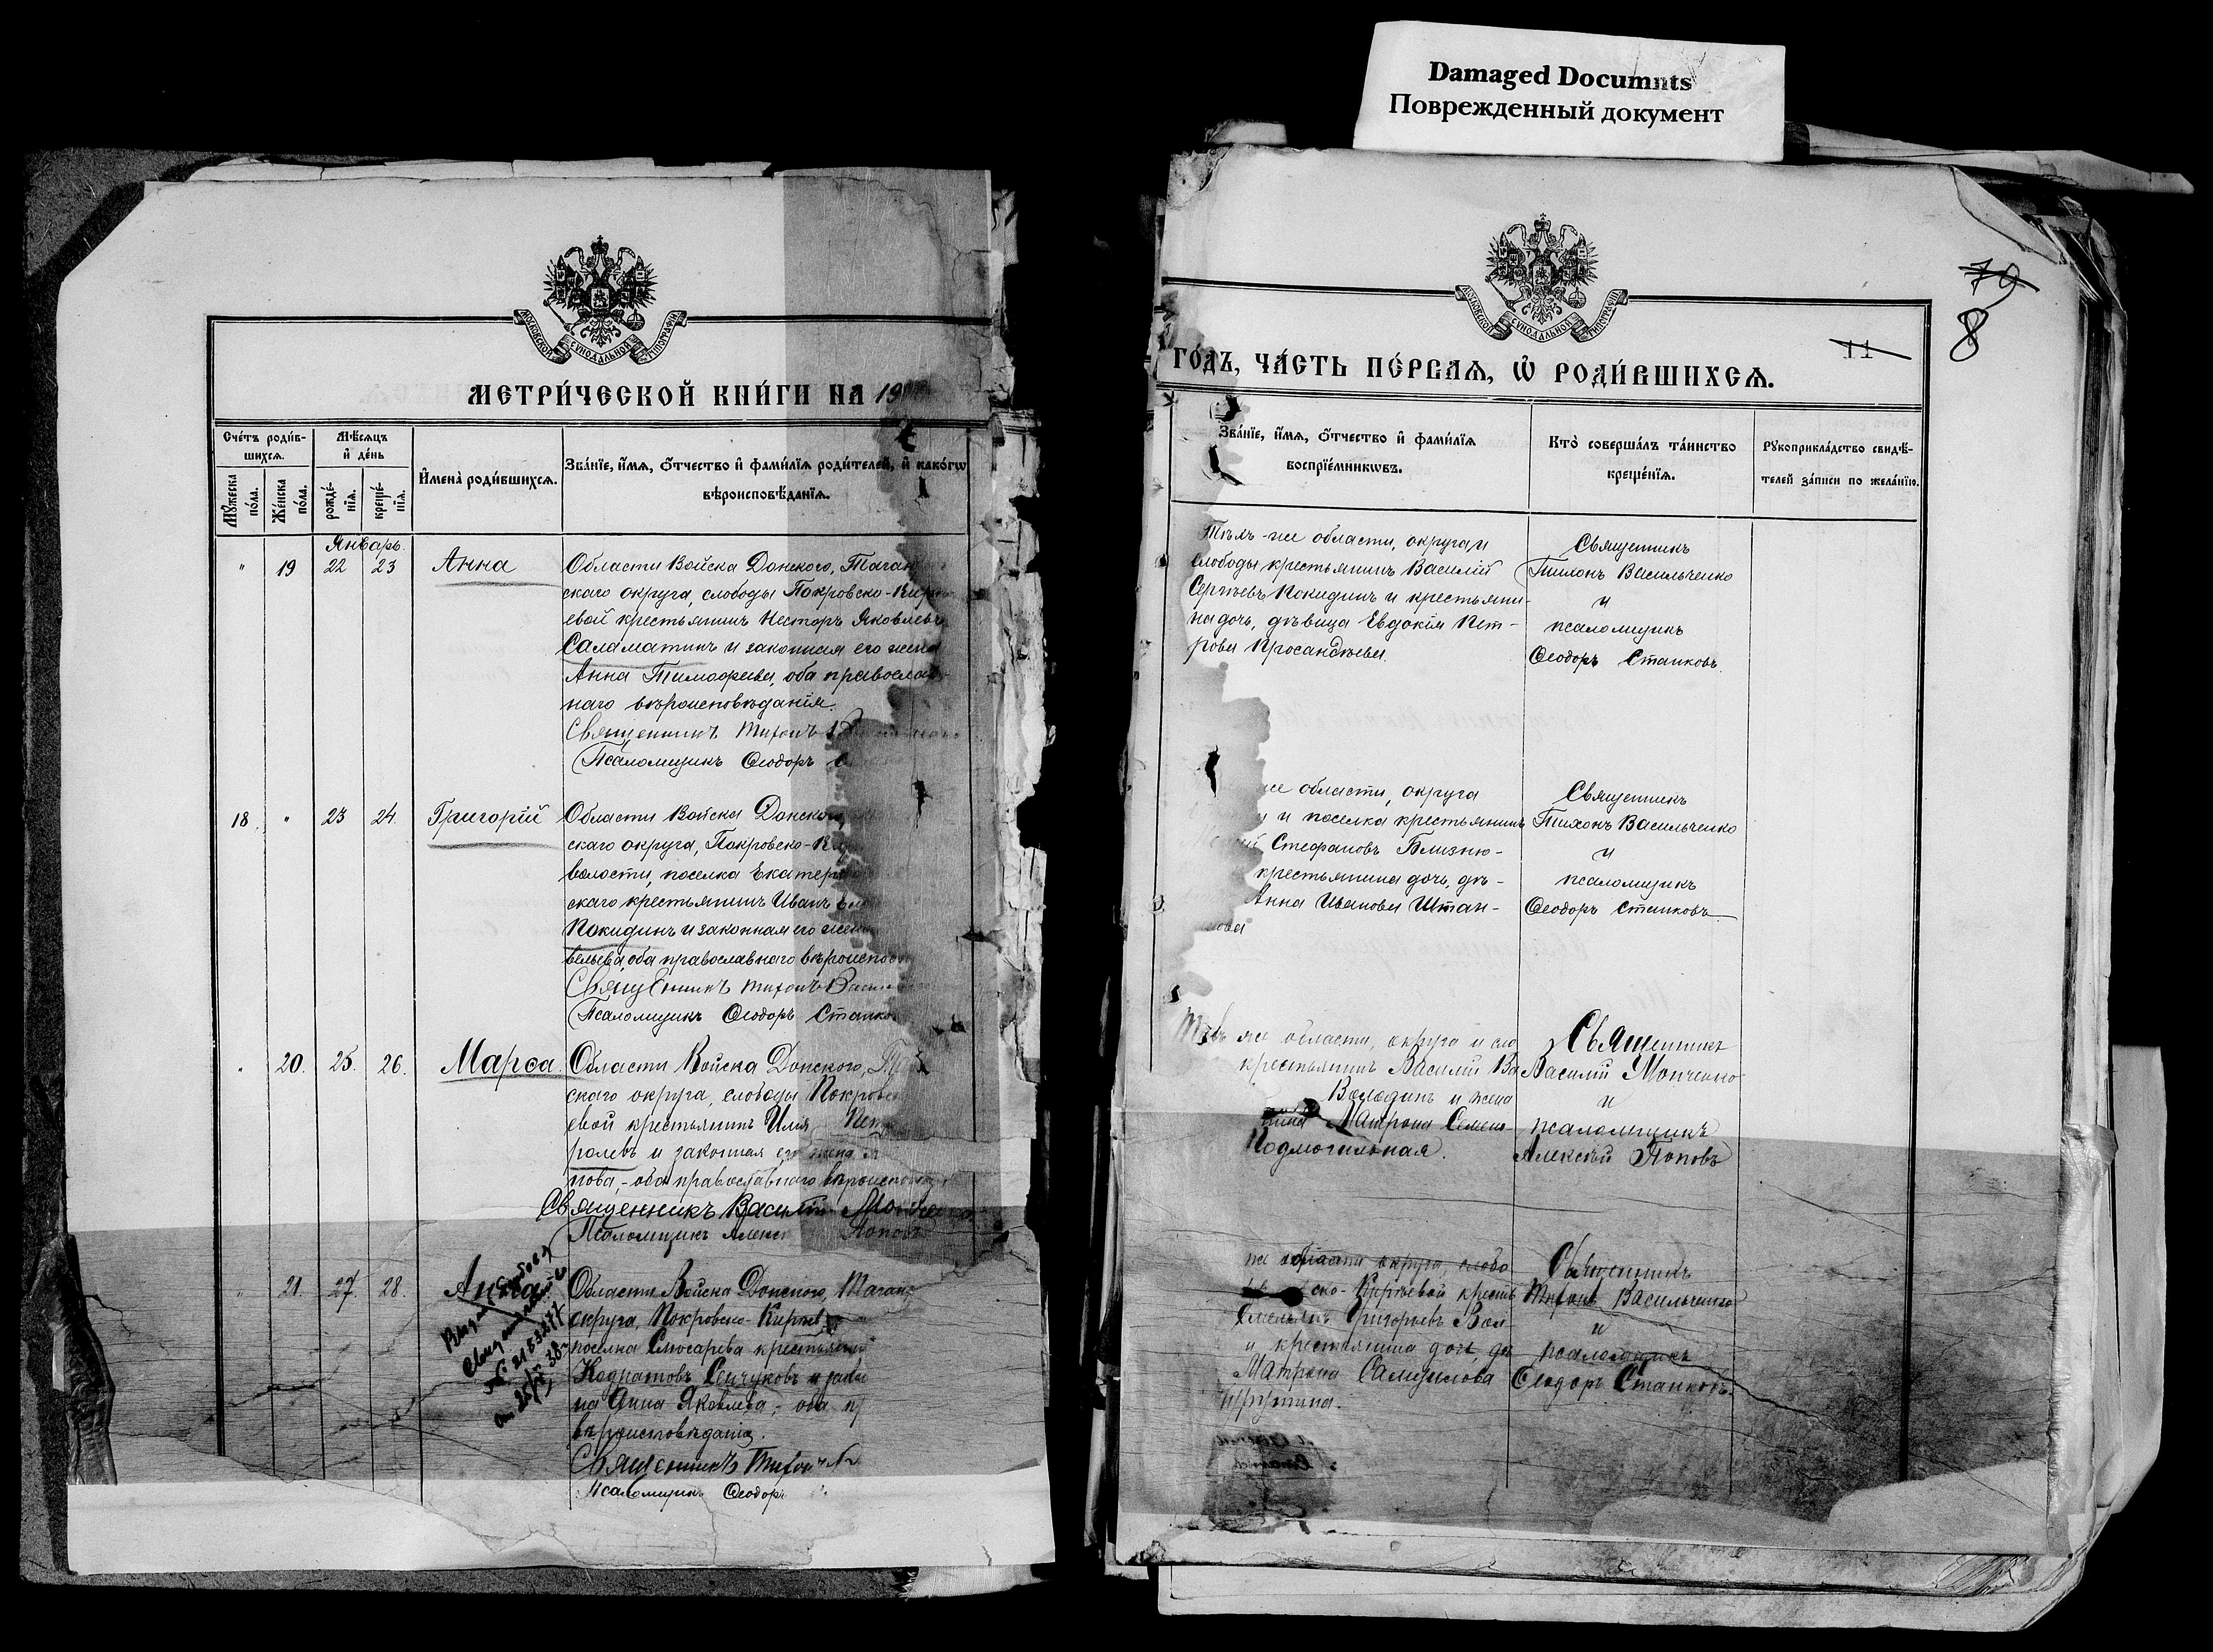 Damaged Documnts
Поврежденный документ
МОСКОВСКОЙ СѴНОДАЛЬНОЙ ТИПОГРАФІИ
МЕТРИ́ЧЕСКОЙ КНИ́ГИ НА 19
Сче́тъ роди́в-
шихсѧ.
Мѣ́сѧцъ
и҆ де́нь
Мꙋ́жеска
по́ла.
Же́нска
по́ла.
рожде́-
нїѧ.
креще́-
нїѧ.
И҆мена̀ роди́вшихсѧ.
Зва́нїе, и҆́мѧ, ѻ҆́тчество и҆ фами́лїѧ роди́телей, и҆ како́гѡ
вѣроисповѣ́данїѧ.
Январь.
" 19 22 23 Анна
Области Войска Донского, Таган
скаго округа, слободы Покровско-Кир
евой крестьянинъ Несторъ Яковлевъ
Саламатинъ и законная его жена
Анна Тимофеева, оба православ
наго вѣроисповѣданія.
Священникъ Тихонъ
Псаломщикъ Ѳеодоръ
18 " 23 24 Григорій
Области Войска Донского,
скаго округа, Покровско-Кир
волости, поселка Екатер
скаго крестьянинъ Иванъ
Покидинъ и законная его жена
вельева, оба православнаго вѣроиспов
Священникъ Тихонъ Васил
Псаломщикъ Ѳеодоръ Станко
" 20. 25. 26. Марѳа
Области Войска Донского, Т
скаго округа, слободы Покровс
евой крестьянинъ Илія Пет
ролевъ и законная его жена
нова, - оба православнаго вѣроиспов
Священникъ Василій Мон
Псаломщикъ Алекс Поповъ
" 21. 27. 28. Анна
№ 2183277
Области Войска Донского, Таган
округа, Покровско-Кирѣев
поселка Слюсарева крестьянин
Кодратовъ Сенчуковъ и закон
на Анна Яковлева, - оба п
вѣроисповѣданія.
Священникъ Тихонъ
Псаломщикъ Ѳеодоръ
МОСКОВСКОЙ СѴНОДАЛЬНОЙ ТИПОГРАФІИ
79
8
11
ГО́ДЪ, ЧА́СТЬ ПЕ́РВАѦ, Ѽ РОДИ́ВШИХСѦ.
Зва́нїе, и҆́мѧ, ѻ҆́тчество и҆ фами́лїѧ
воспрїе́мникѡвъ.
Кто̀ соверша́лъ та́инство
креще́нїѧ.
Рꙋкоприкла́дство свидѣ́-
телей за́писи по жела́нїю.
Тѣхъ-же области, округа и
слободы крестьянинъ Василій
Сергѣевъ Покидинъ и крестьяни-
на дочь, дѣвица Евдокія Пет-
рова Просандѣева.
Священникъ
Тихонъ Васильченко
и
псаломщикъ
Ѳеодоръ Станковъ.
же области, округа
и и поселка крестьянинъ
Стефановъ Близню-
крестьянина дочь, дѣ-
Анна Иванова Штан-
нова
Священникъ
Тихонъ Васильченко
и
псаломщикъ
Ѳеодоръ Станковъ
же области, округа и сло
крестьянинъ Василій Ва
Володинъ и жена
Матрона Семено-
Подмогильная.
Священникъ
Василій Монченко
и
псаломщикъ
Алексѣй Поповъ
же области округа слобо
ско-Кирѣевой крестья
Емельянъ Григорьевъ Вол-
и крестьянина дочь, дѣ
Матрона Самуилова
Священникъ
Тихонъ Васильченко
и
псаломщикъ
Ѳеодоръ Станковъ.